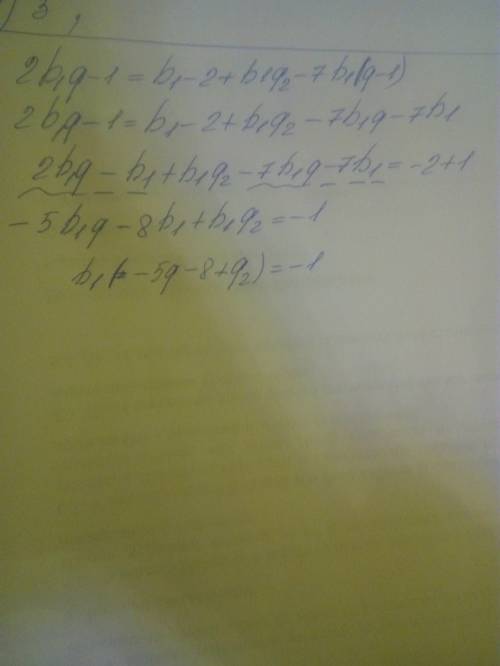 3,
2b₁q-1=b₁-2+b₁q₂-7b₁(q-1)
2b₁q-1=b₁-2+b₁q₂-7b₁q-7b₁
2b₁q-b₁+b₁q₂-7b₁q-7b₁=-2+1
-5b₁q-8b₁+b₁q₂=-1
b₁(-5q-8+q₂)=-1